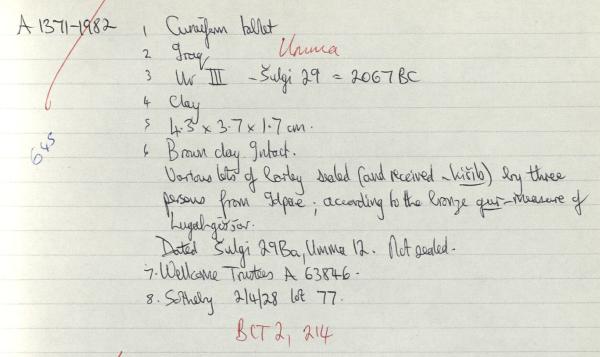 A 1371-1982 1 Cuneiform tablet
2 Iraq Umma
3 Ur III - Šulgi 29 = 2067 BC
4 Clay
5 4.3 x 3.7 x 1.7 cm.
645
6 Brown clay. Intact.
Various lots of barley sealed (and received - kišib) by three
persons from ; according to the bronze gur-measure of
Lugal-giššar.
Dated Šulgi 29Ba, Umma 12. Not sealed.
7. Wellcome Trustees A 63846.
8. Sotheby 2/4/28 lot 77.
BCT 2, 214